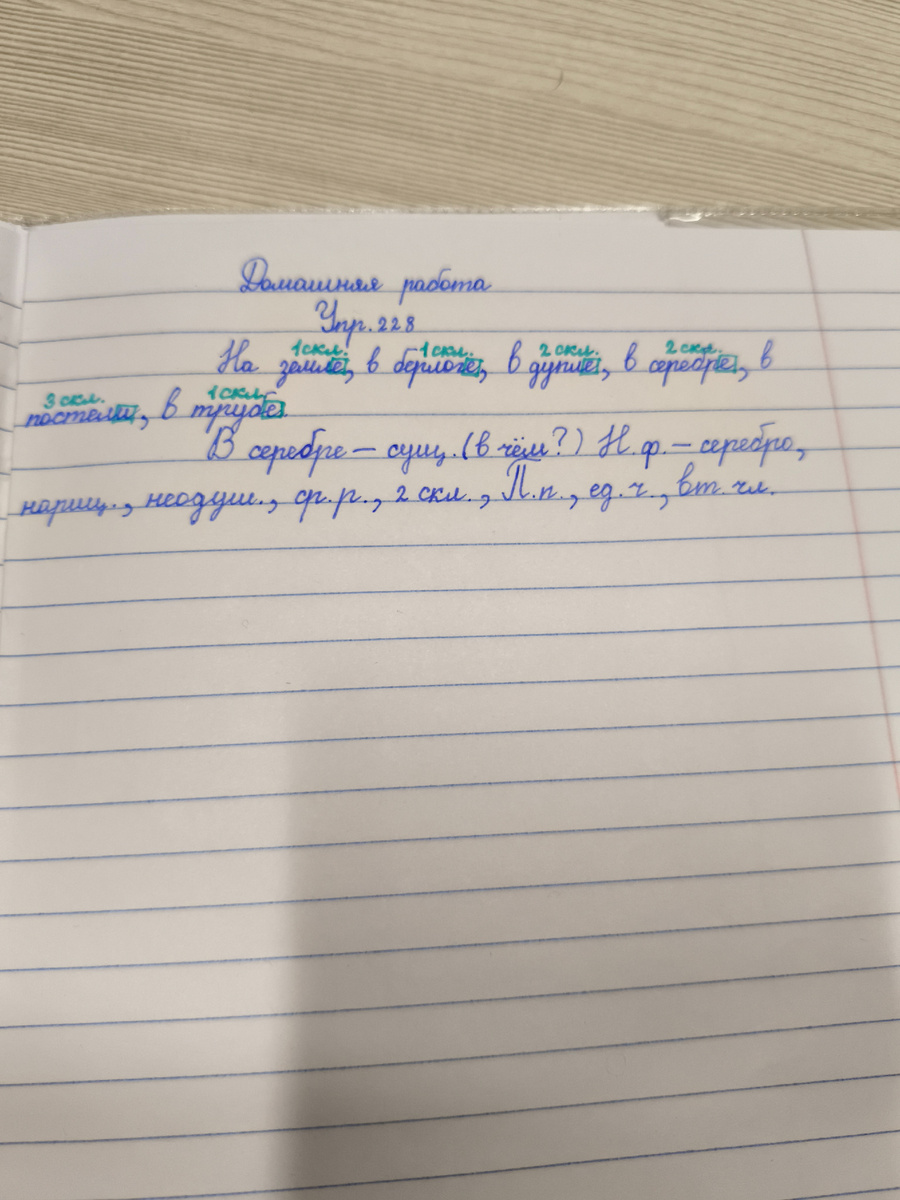 Домашняя работа
Упр. 228
1 скл. 1 скл. 2 скл. 2 скл.
На земле, в берлоге, в дупле, в серебре, в
3 скл. 1 скл.
постели, в трубе.
В серебре – сущ. (в чём?) Н.ф. – серебро,
нариц., неодуш., ср.р., 2 скл., П.п., ед.ч., вт. чл.